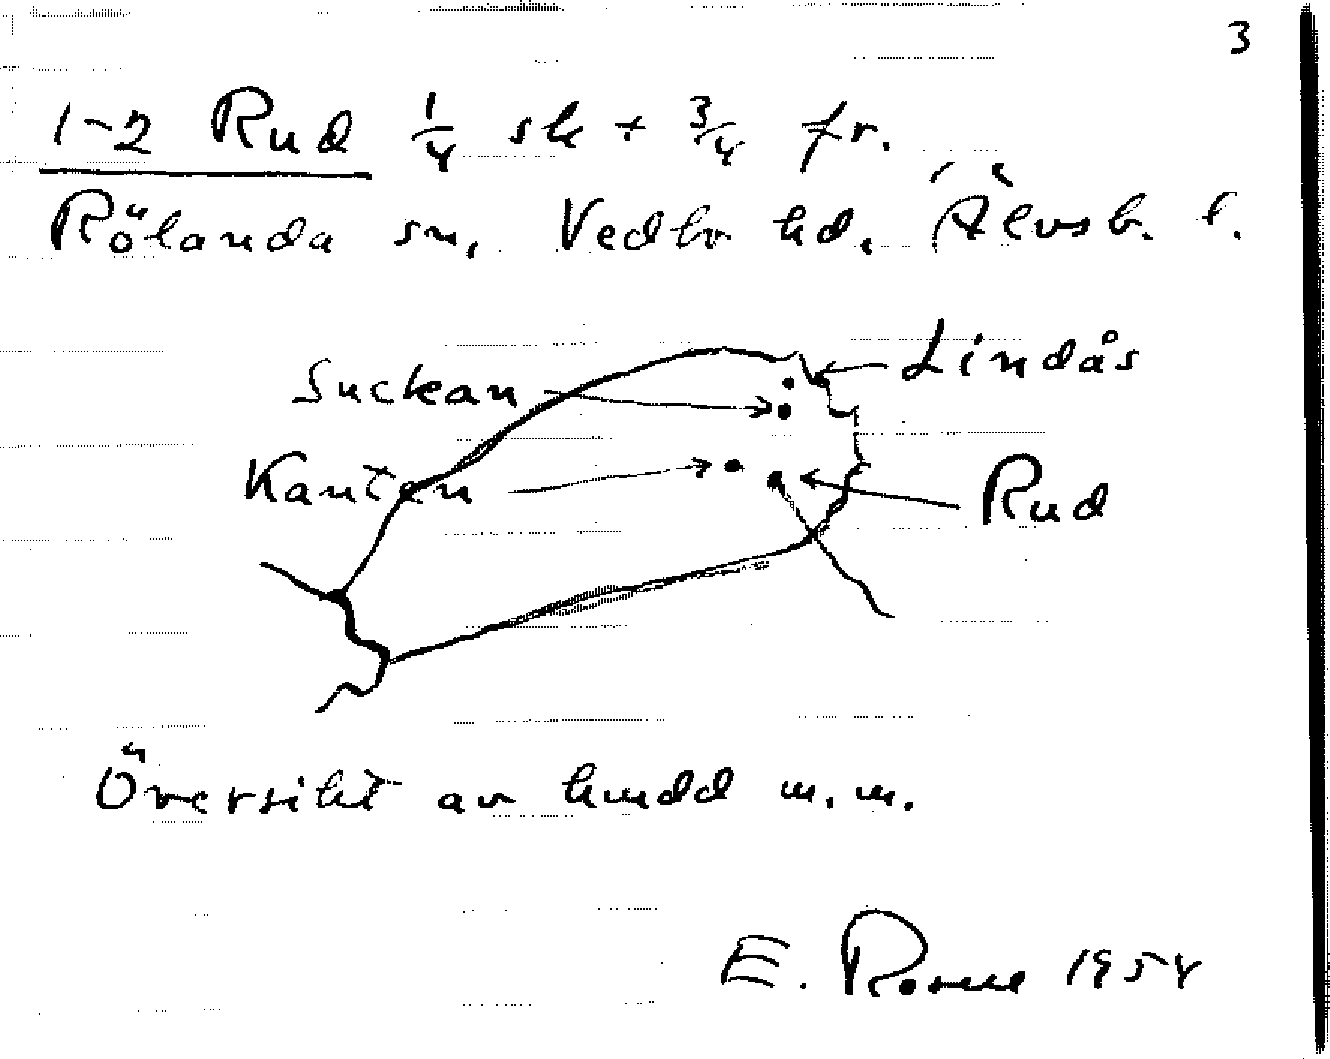 3
1-2 Rud 1/4 sk + 3/4 fr.
Rölanda sn, Vedbo hd, Älvsb. l.
Suckan
Lindås
Kanten
Rud
Översikt av hmdd m.m.
E. 1954